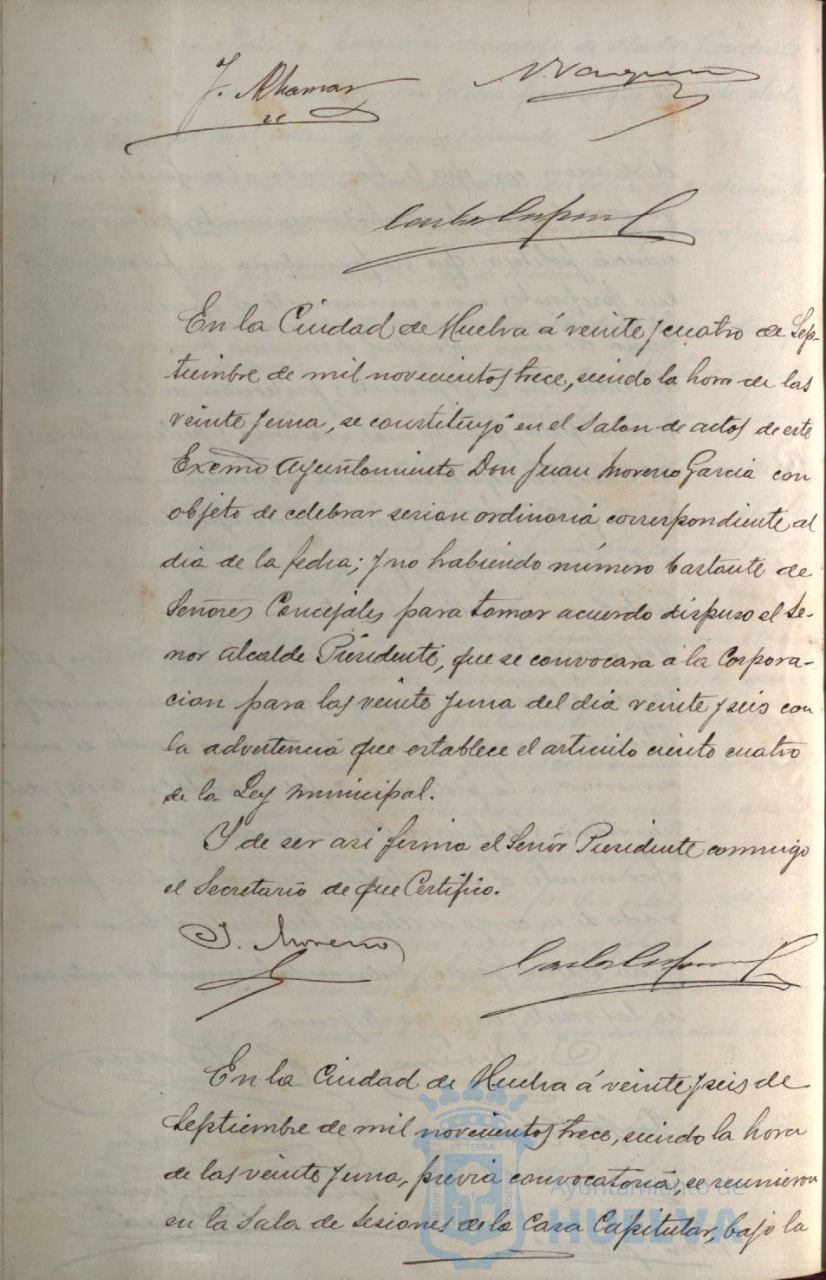 J. Alhamar
En la Ciudad de Huelva á veinte y cuatro de Sep-
tiembre de mil novecientos trece, siendo la hora de las
veinte y una, se constituyó en el Salon de actos de este
Excmo Ayuntamiento Don Juan Moreno Garcia con
objeto de celebrar sesion ordinaria correspondiente al
dia de la fecha; y no habiendo número bastante de
Señores Concejales para tomar acuerdo dispuso el Se-
ñor Alcalde Presidente, que se convocara á la Corpora-
cion para las veinte y una del dia veinte y seis con
la advertencia que establece el articulo ciento cuatro
de la Ley Municipal.
Y de ser asi firma el Señor Presidente conmigo
el Secretario de que Certifico.
J. Moreno
En la Ciudad de Huelva á veinte y seis de
Septiembre de mil novecientos trece, siendo la hora
de las veinte y una, previa convocatoria, se reunieron
en la Sala de Sesiones de la Casa Capitular, bajo la
Ayuntamiento de
HUELVA